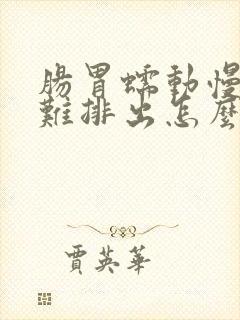 腸胃蠕動慢
難排出怎麼
賈英華